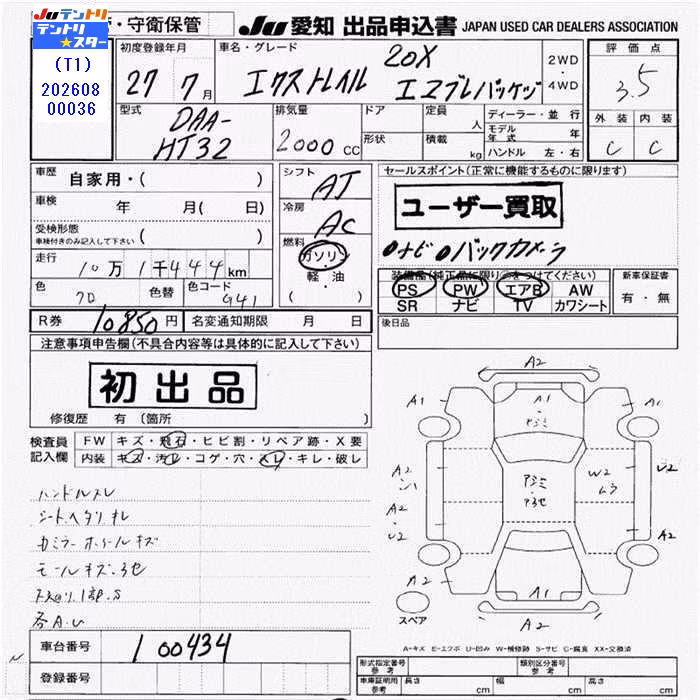 ・守衛保管
JUテントリ
テントリ★スター
(T1)
202608
00036
JU 愛知 出品申込書 JAPAN USED CAR DEALERS ASSOCIATION
初度登録年月
27 7月
車名・グレード
20X
エクストレイル エマブレパッケッジ
2WD
・
4WD
評価点
3.5
外装 内装
C C
型式
DAA-
HT32
排気量
2000 CC
ドア
形状
定員 人
積載 kg
ディーラー・並行
モデル年式 年
ハンドル 左・右
車歴 自家用・( )
車検 年 月( 日)
受検形態
車検付きのみ記入して下さい ( )
走行 10万1千444km
色 クロ 色替 色コード G41
R券 10850円 名変通知期限 月 日
シフト AT
冷房 AC
燃料
ガソリン
軽・油
( )
セールスポイント(正常に機能するものに限ります)
ユーザー買取
ナビ バックカメラ
装備品(純正品に限り○をつけてください)
PS PW エアB AW
SR ナビ TV カワシート
新車保証書
有・無
後日品
注意事項申告欄(不具合内容等は具体的に記入して下さい)
初出品
修復歴 有 〔箇所 〕
検査員
記入欄
FW キズ・飛石・ヒビ割・リペア跡・X要
内装 キズ・汚レ・コゲ・穴・スレ・キレ・破レ
ハンドルスレ
シートヘタリ オレ
カミラー ホイールキズ
モールキズ・
各A.U
車台番号 100434
登録番号
A2
A1 A1 A1
A2 W2 U2
ムラ
A2
U2
A2
A2 A1
A2
スペア
A-キズ E-エクボ U-凹み W-補修跡 S-サビ C-腐食 XX-交換済
形式指定番号
参考
類別区分番号
参考
車庫証明用
参考
長さ cm 幅 cm 高さ cm